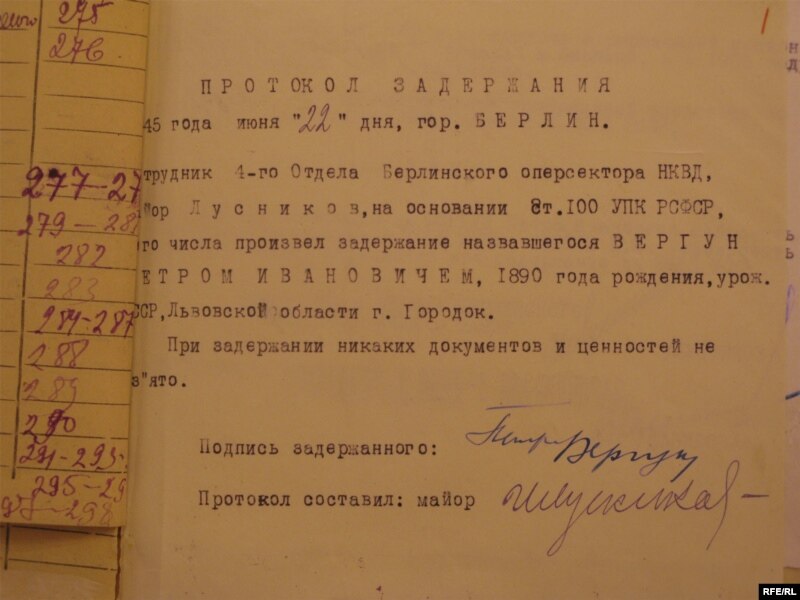 275
276
277-27
279-281
282
283
284-287
288
289
290
291-293
295-29
1
ПРОТОКОЛ ЗАДЕРЖАНИЯ
45 года июня "22" дня, гор. БЕРЛИН.
трудник 4-го Отдела Берлинского оперсектора НКВД,
йор Лусников, на основании 8т.100 УПК РСФСР,
го числа произвел задержание назвавшегося ВЕРГУН
ЕТРОМ ИВАНОВИЧЕМ, 1890 года рождения, урож.
СР, Львовской области г. Городок.
При задержании никаких документов и ценностей не
з"ято.
Подпись задержанного: Петр Вергун
Протокол составил: майор
RFE/RL